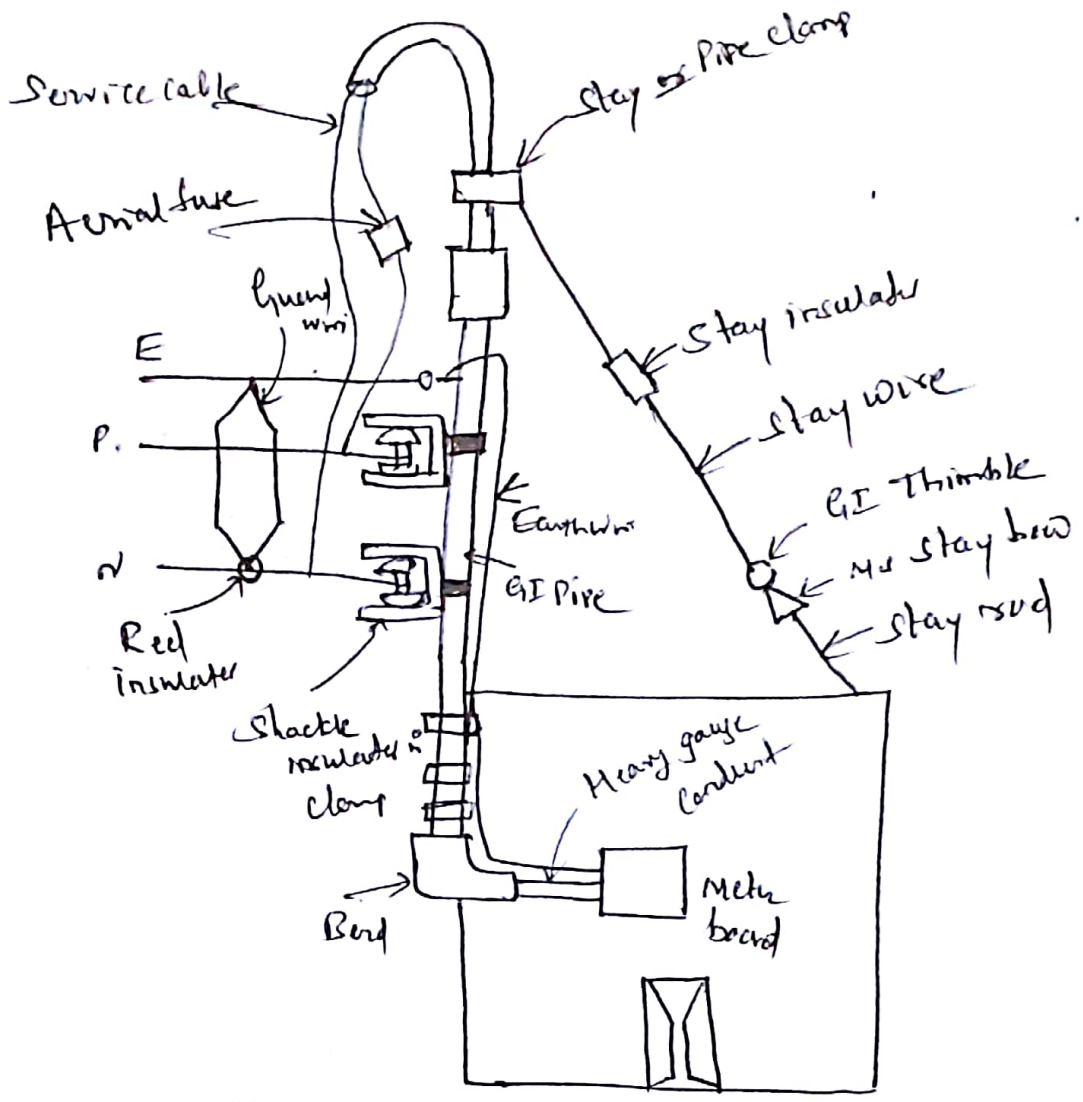 Service cable
Stay or Pipe clamp
Aerial fuse
Guard
wire
Stay insulator
E
Stay wire
P.
GI Thimble
Earth wire
MS Stay bow
N
GI Pipe
Stay rod
Reel
insulater
Shackle
insulater n
clamp
Heavy gauge
Conduit
Meter
board
Bend